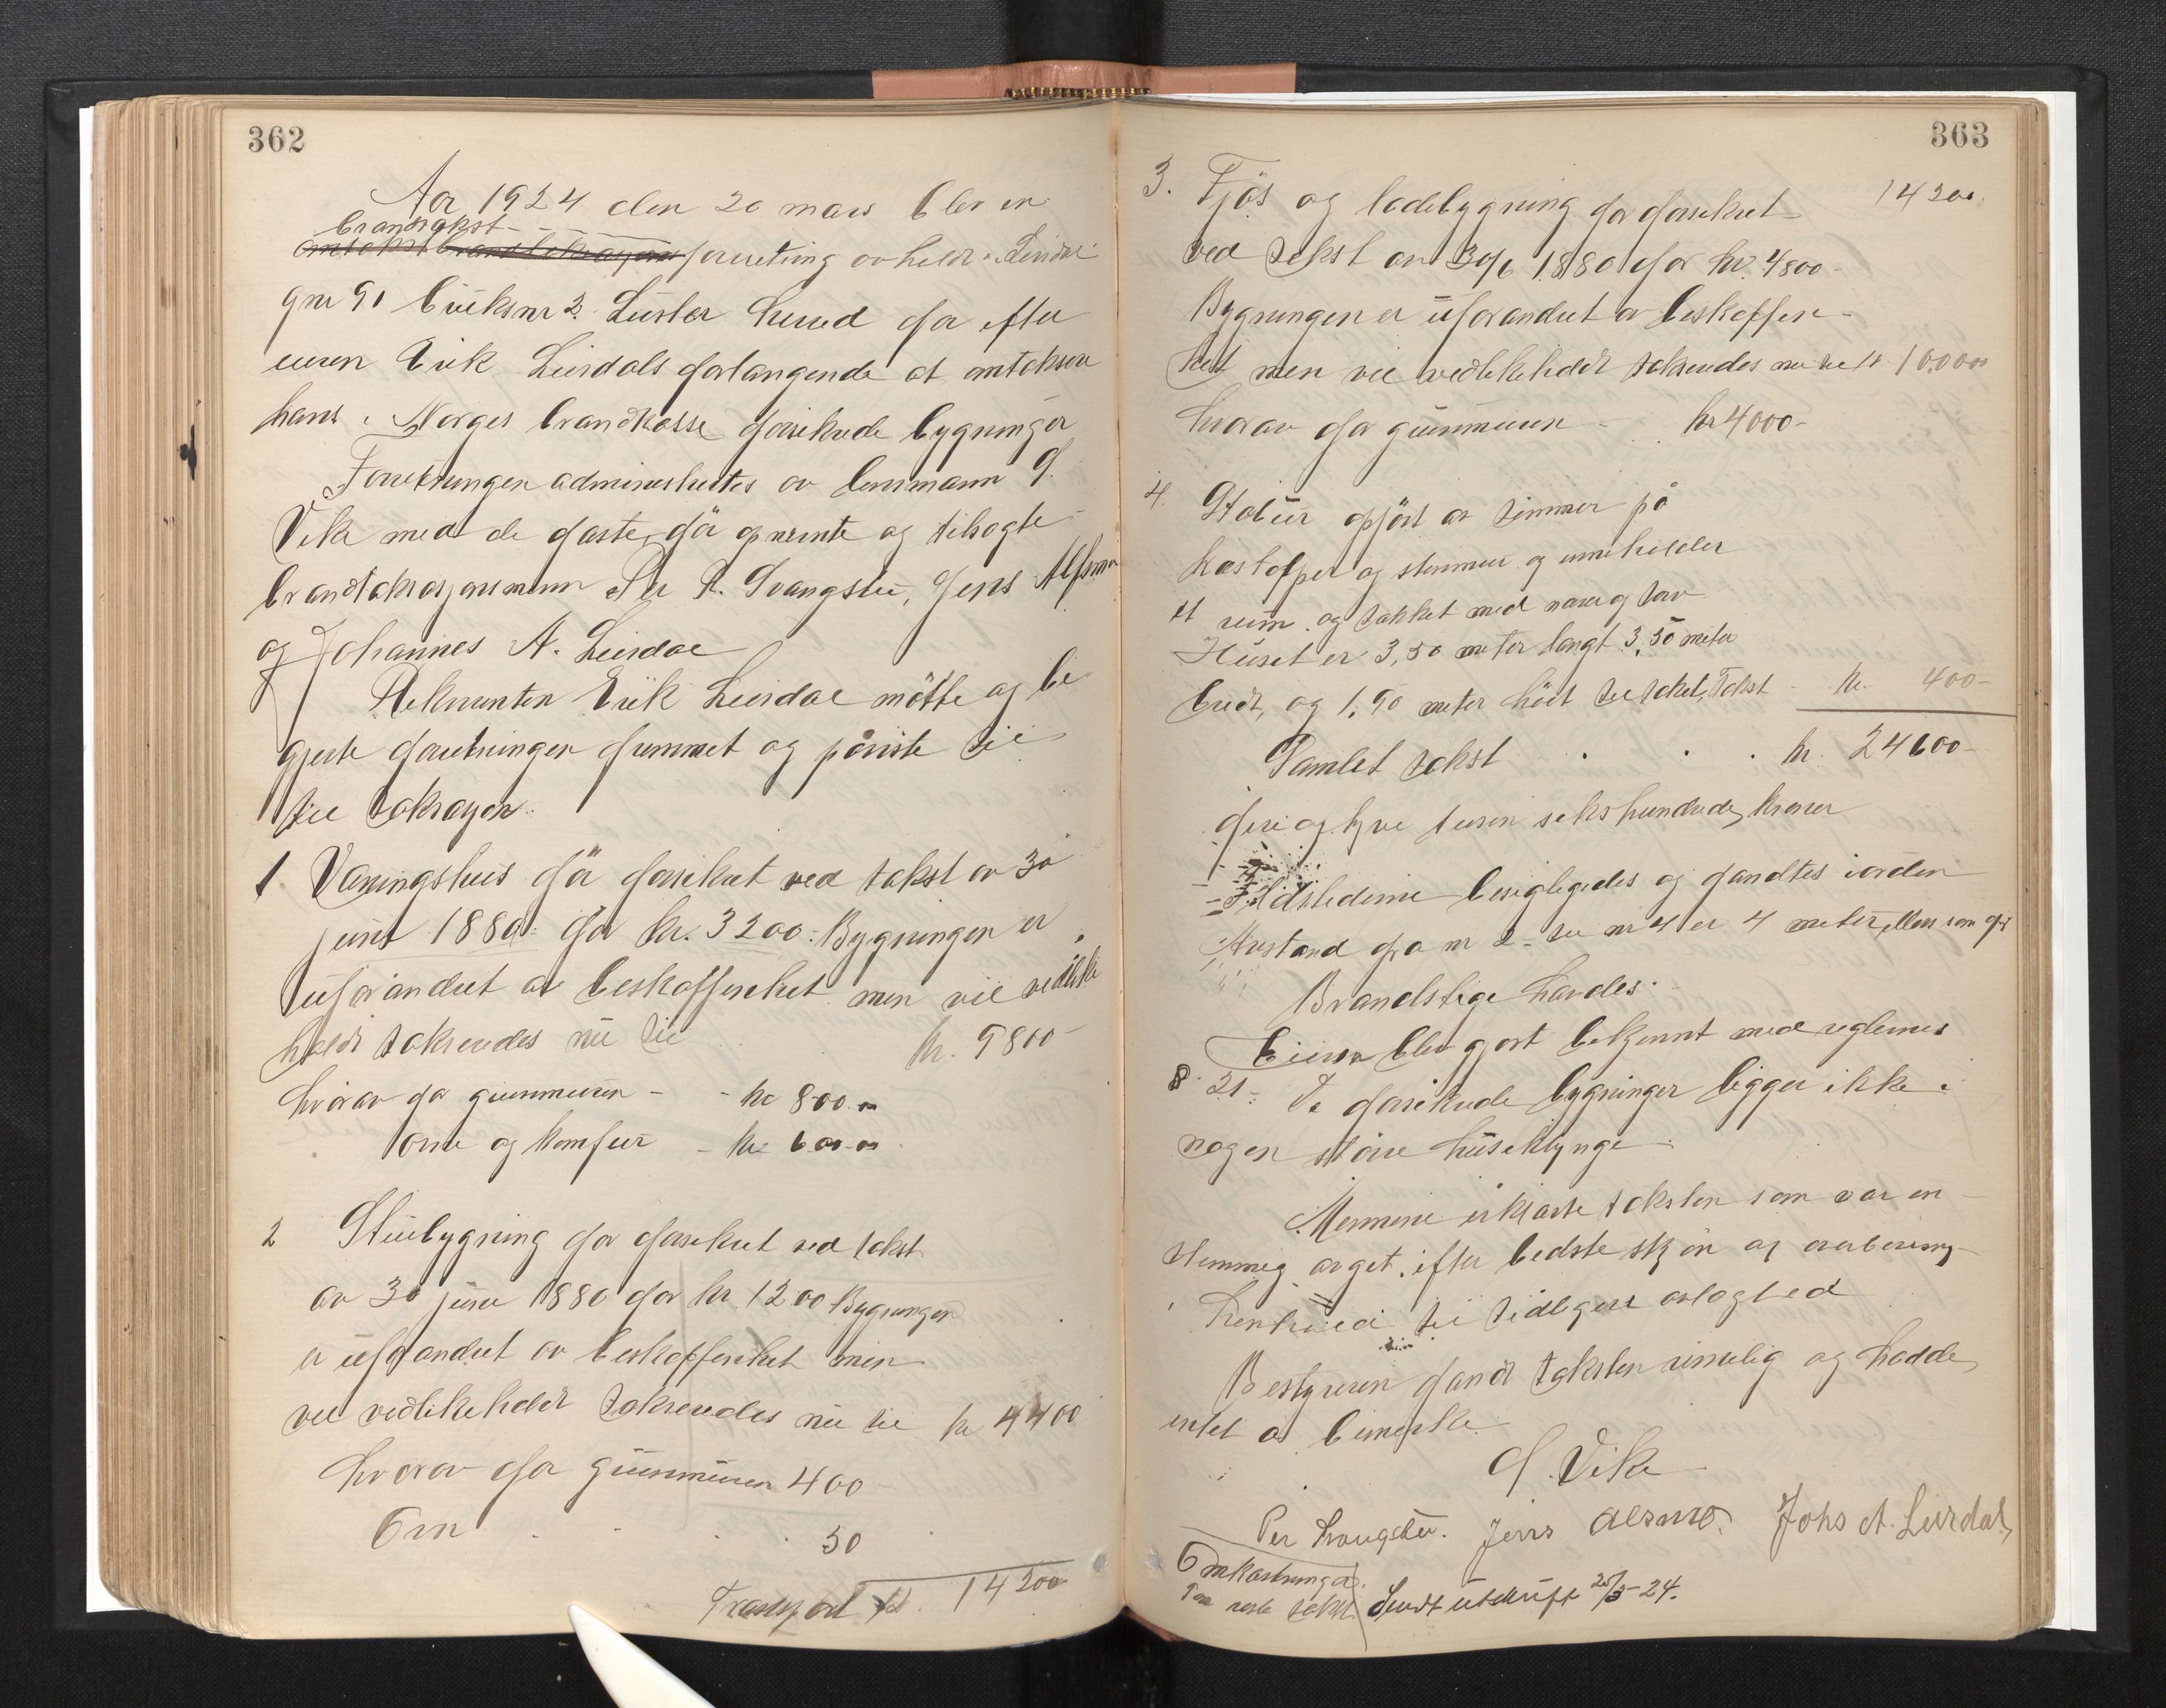 362
Aar 1924 den 20 mars blev en
brandtakst
forretning avholdt i Leirdal
gnr 91 bruksnr 2. Luster herred for efter
eieren Erik Leirdals forlangende at omtaksere
hans i Norges brandkasse forsikrede bygninger
Forretningen administrertes av lensmann
Vike med de faste, før opnevnte og tilsagte
brandtaksasjonsmenn Per R. Svangstu, Jens Alsmo
og Johannes A. Leirdal
Rekvirenten Erik Leirdal møtte og be
gjerte forretningen fremmet og påviste til
til taksasjon.
1 Våningshus før forsikret ved takst av 30
juni 1880 for kr. 3200. Bygningen er
uforandret av beskaffenhet men vel vedlike
holdt takseredes nu til kr. 9800
hvorav for grunmuren - - kr 800.00
ovne og komfur - kr 600.00
2 Stuebygning før forsikret ved takst
av 30 juni 1880 for kr 1200 Bygningen
er uforandret av beskaffenhet men
vel vedlikeholdt takseredes nu til kr 4400
hvorav for grunmuren 400
Ovn 50
Transport kr. 14200
363
3. Fjös og ladebygning før forsikret 14200.
ved takst av 30/6 1880 for kr. 4800-
Bygningen er uforandret av beskaffen-
het men vel vedlikeholdt takseredes nu til kr 10.000
hvorav for grunmuren - kr 4000-
4. Stabur opført av tømmer på
og stenmur og inneholder
rum og takket med never og torv
Huset er 3,50 meter langt 3,50 meter
bredt, og 1,90 meter høit til taket, Takst kr. 400-
Samlet takst . . . kr. 24600-
fire og tyve tusen sekshundrede kroner
Ildstederne besigtigedes og fandtes i orden
Avstand fra nr 2 til nr 4 er 4 meter, ellers som før
Brandstige havdes.
Eieren blev gjort bekjennt med reglernes
§ 21. De forsikrede bygninger ligger ikke i
nogen större huseklynge.
Mennene erklærte taksten som var en-
stemmig avget efter bedste skjön og overbevisning
i henhold til tidligere avlagt ed
Bestyreren fandt taksten rimelig og hadde
intet at bemerke
Vike
Per Svangstu. Jens Alsmo. Johs A. Leirdal,
Omkostninger
se neste takst Sendt utskrift 25/3-24.